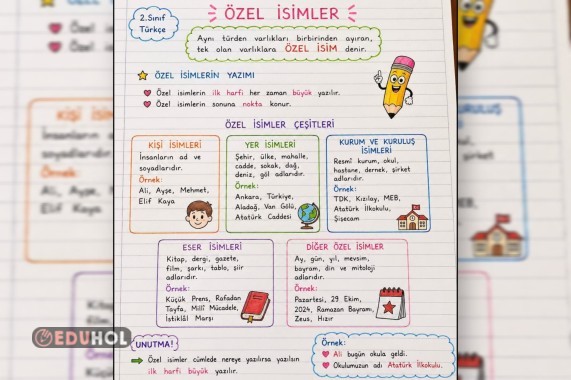 2.Sınıf
Türkçe
ÖZEL İSİMLER
Aynı türden varlıkları birbirinden ayıran,
tek olan varlıklara ÖZEL İSİM denir.
ÖZEL İSİMLERİN YAZIMI
Özel isimlerin ilk harfi her zaman büyük yazılır.
Özel isimlerin sonuna nokta konur.
ÖZEL İSİMLER ÇEŞİTLERİ
KİŞİ İSİMLERİ
İnsanların ad ve
soyadlarıdır.
Örnek:
Ali, Ayşe, Mehmet,
Elif Kaya
YER İSİMLERİ
Şehir, ülke, mahalle,
cadde, sokak, dağ,
deniz, göl adlarıdır.
Örnek:
Ankara, Türkiye,
Aladağ, Van Gölü,
Atatürk Caddesi
KURUM VE KURULUŞ
İSİMLERİ
Resmî kurum, okul,
hastane, dernek, şirket
adlarıdır.
Örnek:
TDK, Kızılay, MEB,
Atatürk İlkokulu,
Şişecam
ESER İSİMLERİ
Kitap, dergi, gazete,
film, şarkı, tablo, şiir
adlarıdır.
Örnek:
Küçük Prens, Rafadan
Tayfa, Millî Mücadele,
İstiklâl Marşı
DİĞER ÖZEL İSİMLER
Ay, gün, yıl, mevsim,
bayram, din ve mitoloji
adlarıdır.
Örnek:
Pazartesi, 29 Ekim,
2024, Ramazan Bayramı,
Zeus, Hızır
UNUTMA!
Özel isimler cümlede nereye yazılırsa yazılsın
ilk harfi büyük yazılır.
Örnek:
Ali bugün okula geldi.
Okulumuzun adı Atatürk İlkokulu.
EDUHOL